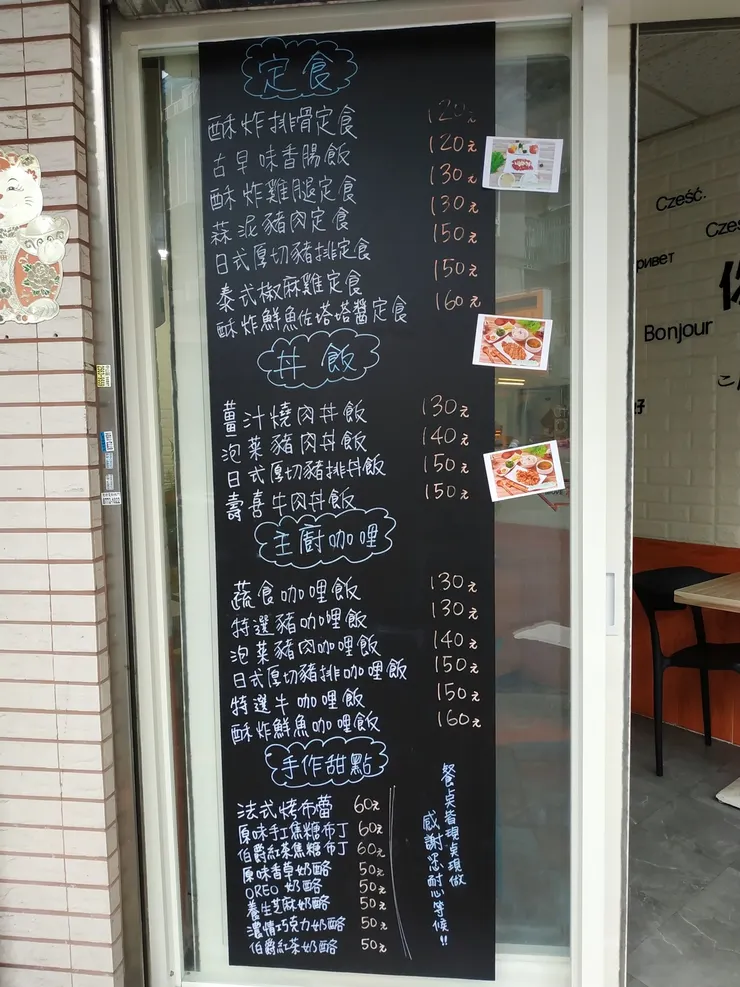 定食
酥炸排骨定食 120元
古早味香腸飯 120元
酥炸雞腿定食 130元
蒜泥豬肉定食 130元
日式厚切豬排定食 150元
泰式椒麻雞定食 150元
酥炸鮮魚佐塔塔醬定食 160元
丼飯
薑汁燒肉丼飯 130元
泡菜豬肉丼飯 140元
日式厚切豬排丼飯 150元
壽喜牛肉丼飯 150元
主廚咖哩
蔬食咖哩飯 130元
特選豬咖哩飯 130元
泡菜豬肉咖哩飯 140元
日式厚切豬排咖哩飯 150元
特選牛咖哩飯 150元
酥炸鮮魚咖哩飯 160元
手作甜點
法式烤布蕾 60元
原味手工焦糖布丁 60元
伯爵紅茶焦糖布丁 60元
原味香草奶酪 50元
OREO 奶酪 50元
養生芝麻奶酪 50元
濃情巧克力奶酪 50元
伯爵紅茶奶酪 50元
餐点皆現点現做
感謝您耐心等候!!
Cześć.
Bonjour